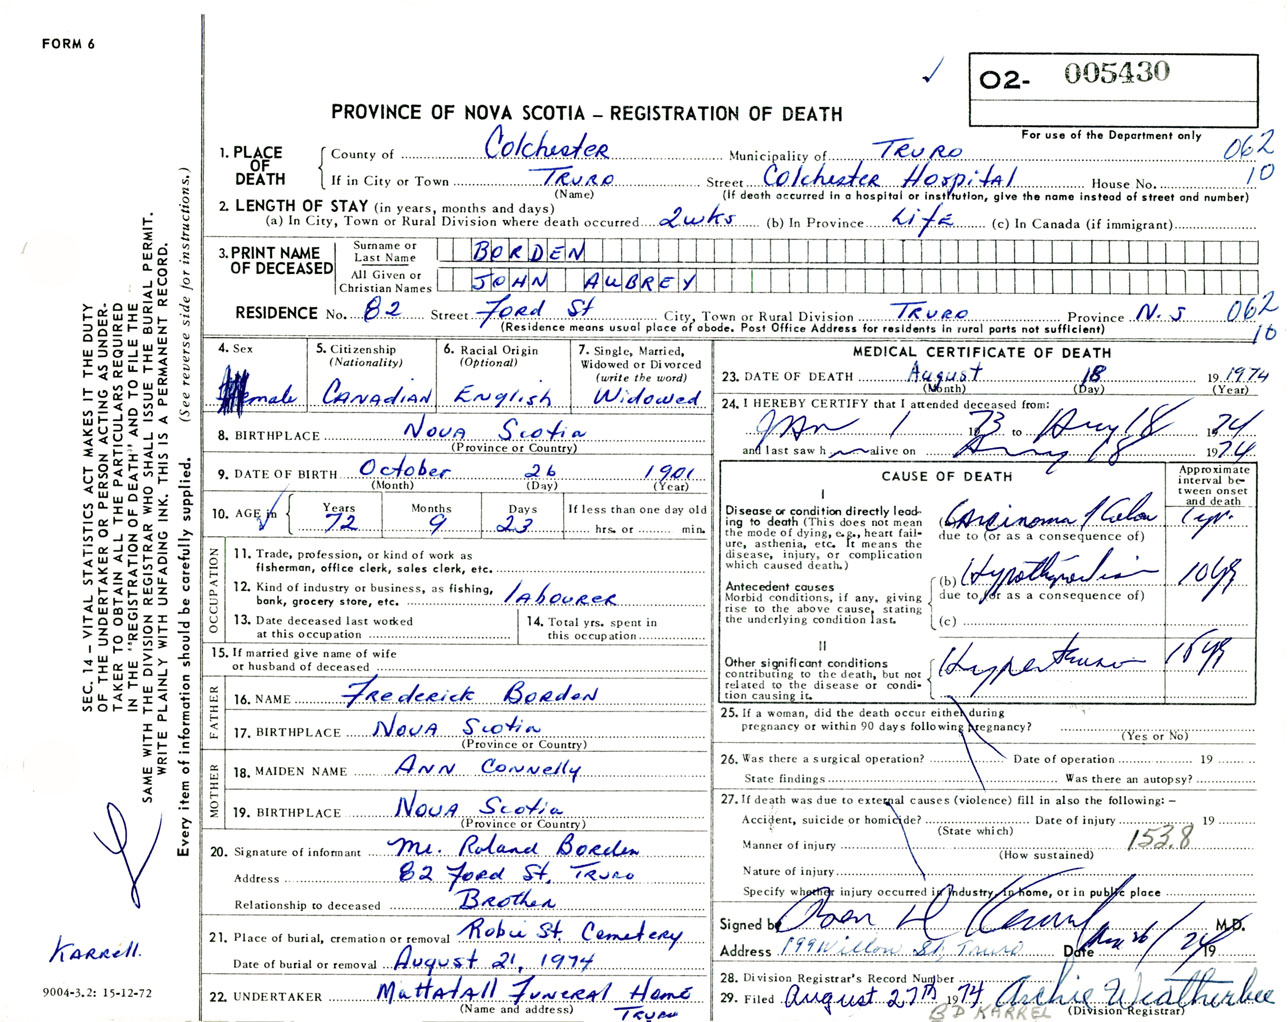 FORM 6
O2- 005430
For use of the Department only
PROVINCE OF NOVA SCOTIA – REGISTRATION OF DEATH
1. PLACE OF DEATH
County of Colchester Municipality of TRURO 062
If in City or Town TRURO Street Colchester Hospital House No. 10
(Name) (If death occurred in a hospital or institution, give the name instead of street and number)
2. LENGTH OF STAY (in years, months and days)
(a) In City, Town or Rural Division where death occurred 2wks (b) In Province Life (c) In Canada (if immigrant)
3. PRINT NAME OF DECEASED
Surname or Last Name BORDEN
All Given or Christian Names JOHN AUBREY
RESIDENCE No. 82 Street Ford St City, Town or Rural Division TRURO Province N.S 062
(Residence means usual place of abode. Post Office Address for residents in rural parts not sufficient) 10
4. Sex male
5. Citizenship (Nationality) CANADIAN
6. Racial Origin (Optional) English
7. Single, Married, Widowed or Divorced (write the word) Widowed
8. BIRTHPLACE Nova Scotia
(Province or Country)
9. DATE OF BIRTH October 26 1901
(Month) (Day) (Year)
10. AGE in Years 72 Months 9 Days 23 If less than one day old hrs. or min.
OCCUPATION
11. Trade, profession, or kind of work as fisherman, office clerk, sales clerk, etc.
12. Kind of industry or business, as fishing, bank, grocery store, etc. labourer
13. Date deceased last worked at this occupation
14. Total yrs. spent in this occupation
15. If married give name of wife or husband of deceased
FATHER
16. NAME Frederick Borden
17. BIRTHPLACE Nova Scotia
(Province or Country)
MOTHER
18. MAIDEN NAME Ann Connelly
19. BIRTHPLACE Nova Scotia
(Province or Country)
20. Signature of informant Mr. Roland Borden
Address 82 Ford St. Truro
Relationship to deceased Brother
21. Place of burial, cremation or removal Robie St. Cemetery
Date of burial or removal August 21, 1974
22. UNDERTAKER Mattatall Funeral Home
(Name and address) TRURO
MEDICAL CERTIFICATE OF DEATH
23. DATE OF DEATH August 18 19 1974
(Month) (Day) (Year)
24. I HEREBY CERTIFY that I attended deceased from:
Jan 1 19 73 to Aug 18 19 74
and last saw h alive on Aug 18 19 74
CAUSE OF DEATH
Approximate interval between onset and death
I
Disease or condition directly leading to death (This does not mean the mode of dying, e.g., heart failure, asthenia, etc. It means the disease, injury, or complication which caused death.)
(a) Carcinoma of Colon 1 yr.
due to (or as a consequence of)
Antecedent causes
Morbid conditions, if any, giving rise to the above cause, stating the underlying condition last.
(b) Hypothyroidism 10 yr
due to (or as a consequence of)
(c)
II
Other significant conditions contributing to the death, but not related to the disease or condition causing it.
Hypertension 15 yr
25. If a woman, did the death occur either during pregnancy or within 90 days following pregnancy?
(Yes or No)
26. Was there a surgical operation? Date of operation 19
State findings Was there an autopsy?
27. If death was due to external causes (violence) fill in also the following: –
Accident, suicide or homicide? Date of injury 19
(State which)
Manner of injury 153.8
(How sustained)
Nature of injury
Specify whether injury occurred in Industry, in home, or in public place
Signed by M.D.
Address 199 Willow St, Truro Date 26/74 19
28. Division Registrar's Record Number
29. Filed August 27th 1974 Archie Weatherbee
(Division Registrar)
BD KARREL
SEC. 14 – VITAL STATISTICS ACT MAKES IT THE DUTY
OF THE UNDERTAKER OR PERSON ACTING AS UNDER-
TAKER TO OBTAIN ALL THE PARTICULARS REQUIRED
IN THE "REGISTRATION OF DEATH" AND TO FILE THE
SAME WITH THE DIVISION REGISTRAR WHO SHALL ISSUE THE BURIAL PERMIT.
WRITE PLAINLY WITH UNFADING INK. THIS IS A PERMANENT RECORD.
Every item of information should be carefully supplied. (See reverse side for instructions.)
KARRELL.
9004-3.2: 15-12-72